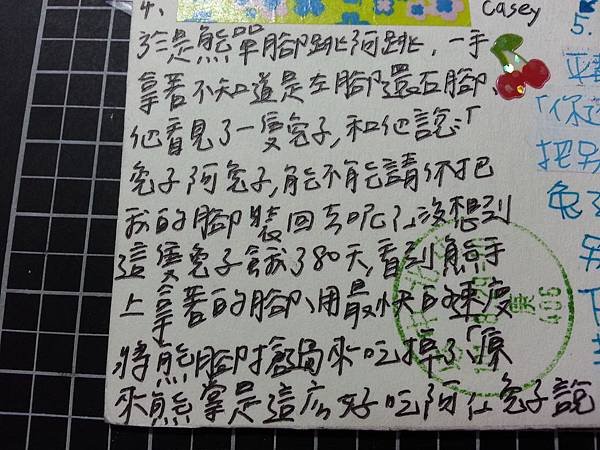 4、
Casey
於是熊單腳跳阿跳,一手
拿著不知道是左腳還右腳、
他看見了一隻兔子,和他說:「
兔子阿兔子,能不能請你把
我的腳裝回去呢?」沒想到
這隻兔子餓了80天,看到熊手
上拿著的腳、用最快的速度
將熊腳搶過來吃掉了「原
來熊掌是這広好吃阿」兔子說
5.
「你
把另
兔子
另
406